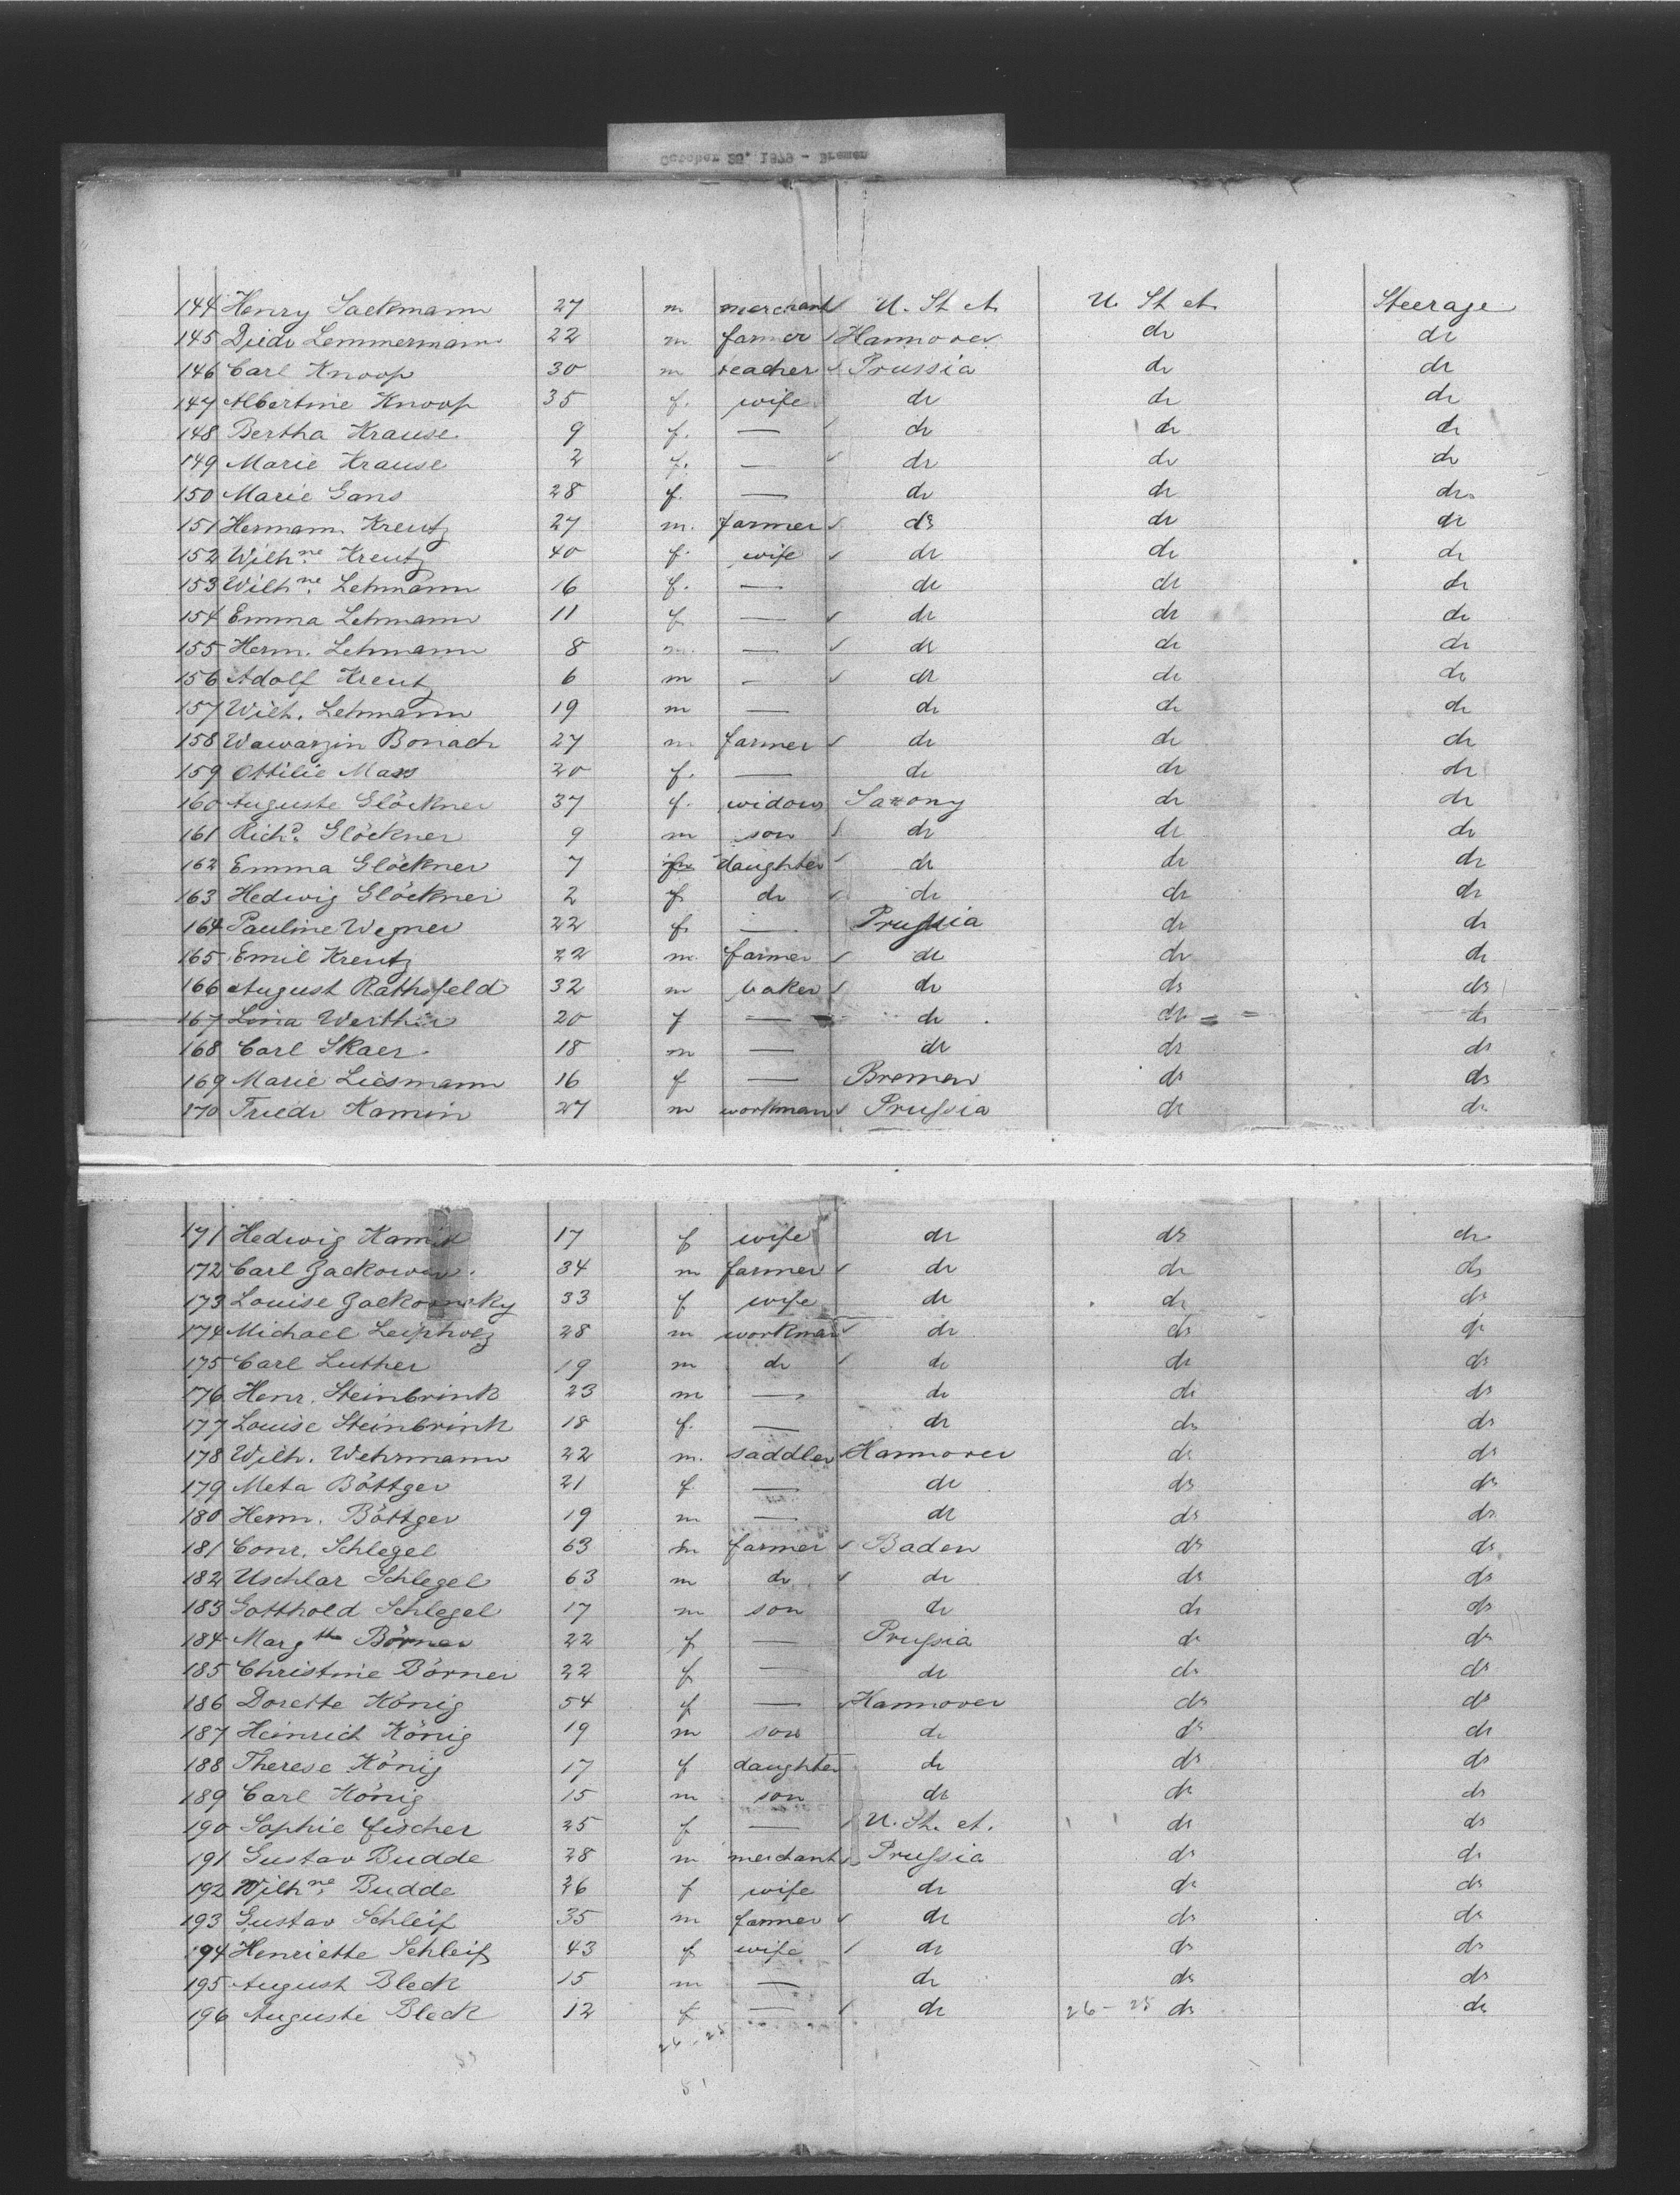 October 25, 1879 - Bremen
144 Henry Sackmann 27 m merchant U. St. et. U. St. et. Steerage
145 Diedr Lemmermann 22 m farmer Hannover do do
146 Carl Knoop 30 m teacher Prussia do do
147 Albertine Knoop 35 f. wife do do do
148 Bertha Krause 9 f. — do do do
149 Marie Krause 2 f. — do do do
150 Marie Gans 28 f. — do do do
151 Hermann Kreutz 27 m. farmer do do do
152 Wilhne. Kreutz 40 f. wife do do do
153 Wilhne. Lehmann 16 f. — do do do
154 Emma Lehmann 11 f — do do do
155 Herm. Lehmann 8 m. — do do do
156 Adolf Kreutz 6 m — do do do
157 Wilh. Lehmann 19 m — do do do
158 Wawarzin Bonach 27 m farmer do do do
159 Ottilie Mass 20 f. — do do do
160 Auguste Glöckner 37 f. widow Saxony do do
161 Richd. Glöckner 9 m son do do do
162 Emma Glöckner 7 f daughter do do do
163 Hedwig Glöckner 2 f do do do do
164 Pauline Wegner 22 f. — Prussia do do
165 Emil Kreutz 22 m. farmer do do do
166 August Rathsfeld 32 m baker do do do
167 Lina Werthin 20 f — do do do
168 Carl Skaer 18 m — do do do
169 Marie Liesmann 16 f — Bremen do do
170 Friedr Kamin 27 m workman Prussia do do
171 Hedwig Kamin 17 f wife do do do
172 Carl 34 m farmer do do do
173 Louise 33 f wife do do do
174 Michael Leipholz 28 m workman do do do
175 Carl Luther 19 m do do do do
176 Henr. Steinbrink 23 m — do do do
177 Louise Steinbrink 18 f. — do do do
178 Wilh. Wehrmann 22 m. saddler Hannover do do
179 Meta Böttger 21 f — do do do
180 Herm. Böttger 19 m — do do do
181 Conr. Schlegel 63 m farmer Baden do do
182 Uschlar Schlegel 63 m do do do do
183 Gotthold Schlegel 17 m son do do do
184 Margth Börner 22 f — Prussia do do
185 Christine Börner 22 f — do do do
186 Dorette König 54 f — Hannover do do
187 Heinrich König 19 m son do do do
188 Therese König 17 f daughter do do do
189 Carl König 15 m son do do do
190 Sophie Fischer 25 f — U. St. et. do do
191 Gustav Budde 28 m merchant Prussia do do
192 Wilhne. Budde 26 f wife do do do
193 Gustav Schleif 35 m farmer do do do
194 Henriette Schleif 43 f wife do do do
195 August Bleck 15 m — do do do
196 Auguste Bleck 12 f — do 26-25 do do
26-25